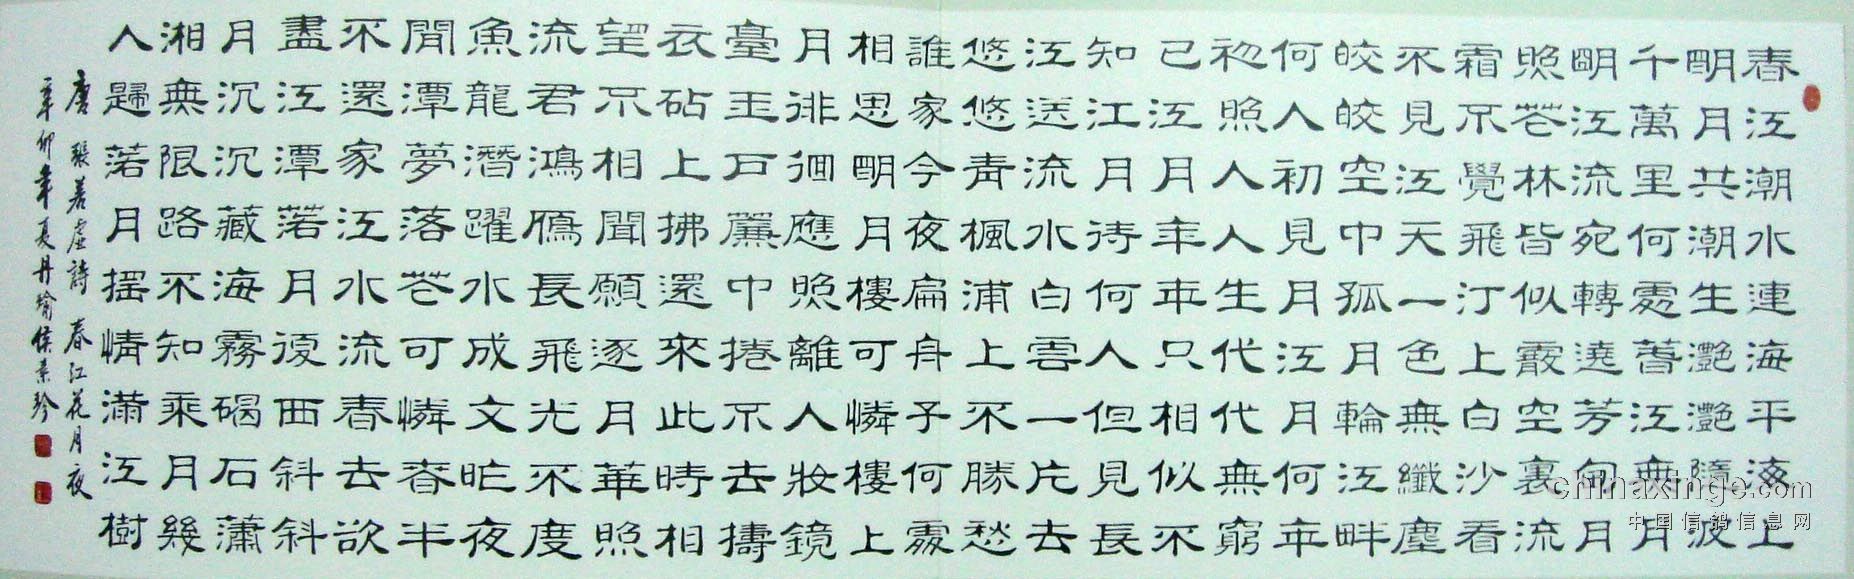 春江潮水連海平海上
明月共潮生灩灩隨波
千萬里何處春江無月
明江流宛轉遶芳甸月
照花林皆似霰空裏流
霜不覺飛汀上白沙看
不見江天一色無纖塵
皎皎空中孤月輪江畔
何人初見月江月何年
初照人人生代代無窮
已江月年年只相似不
知江月待何人但見長
江送流水白雲一片去
悠悠青楓浦上不勝愁
誰家今夜扁舟子何處
相思明月樓可憐樓上
月徘徊應照離人妝鏡
臺玉戶簾中捲不去擣
衣砧上拂還來此時相
望不相聞願逐月華照
流君鴻雁長飛光不度
魚龍潛躍水成文昨夜
閒潭夢落花可憐春半
不還家江水流春去欲
盡江潭落月復西斜斜
月沉沉藏海霧碣石瀟
湘無限路不知乘月幾
人歸落月搖情滿江樹
唐 張若虛詩 春江花月夜
辛卯年夏丹瑜侯珍
chinaxinge.com
中国信鸽信息网